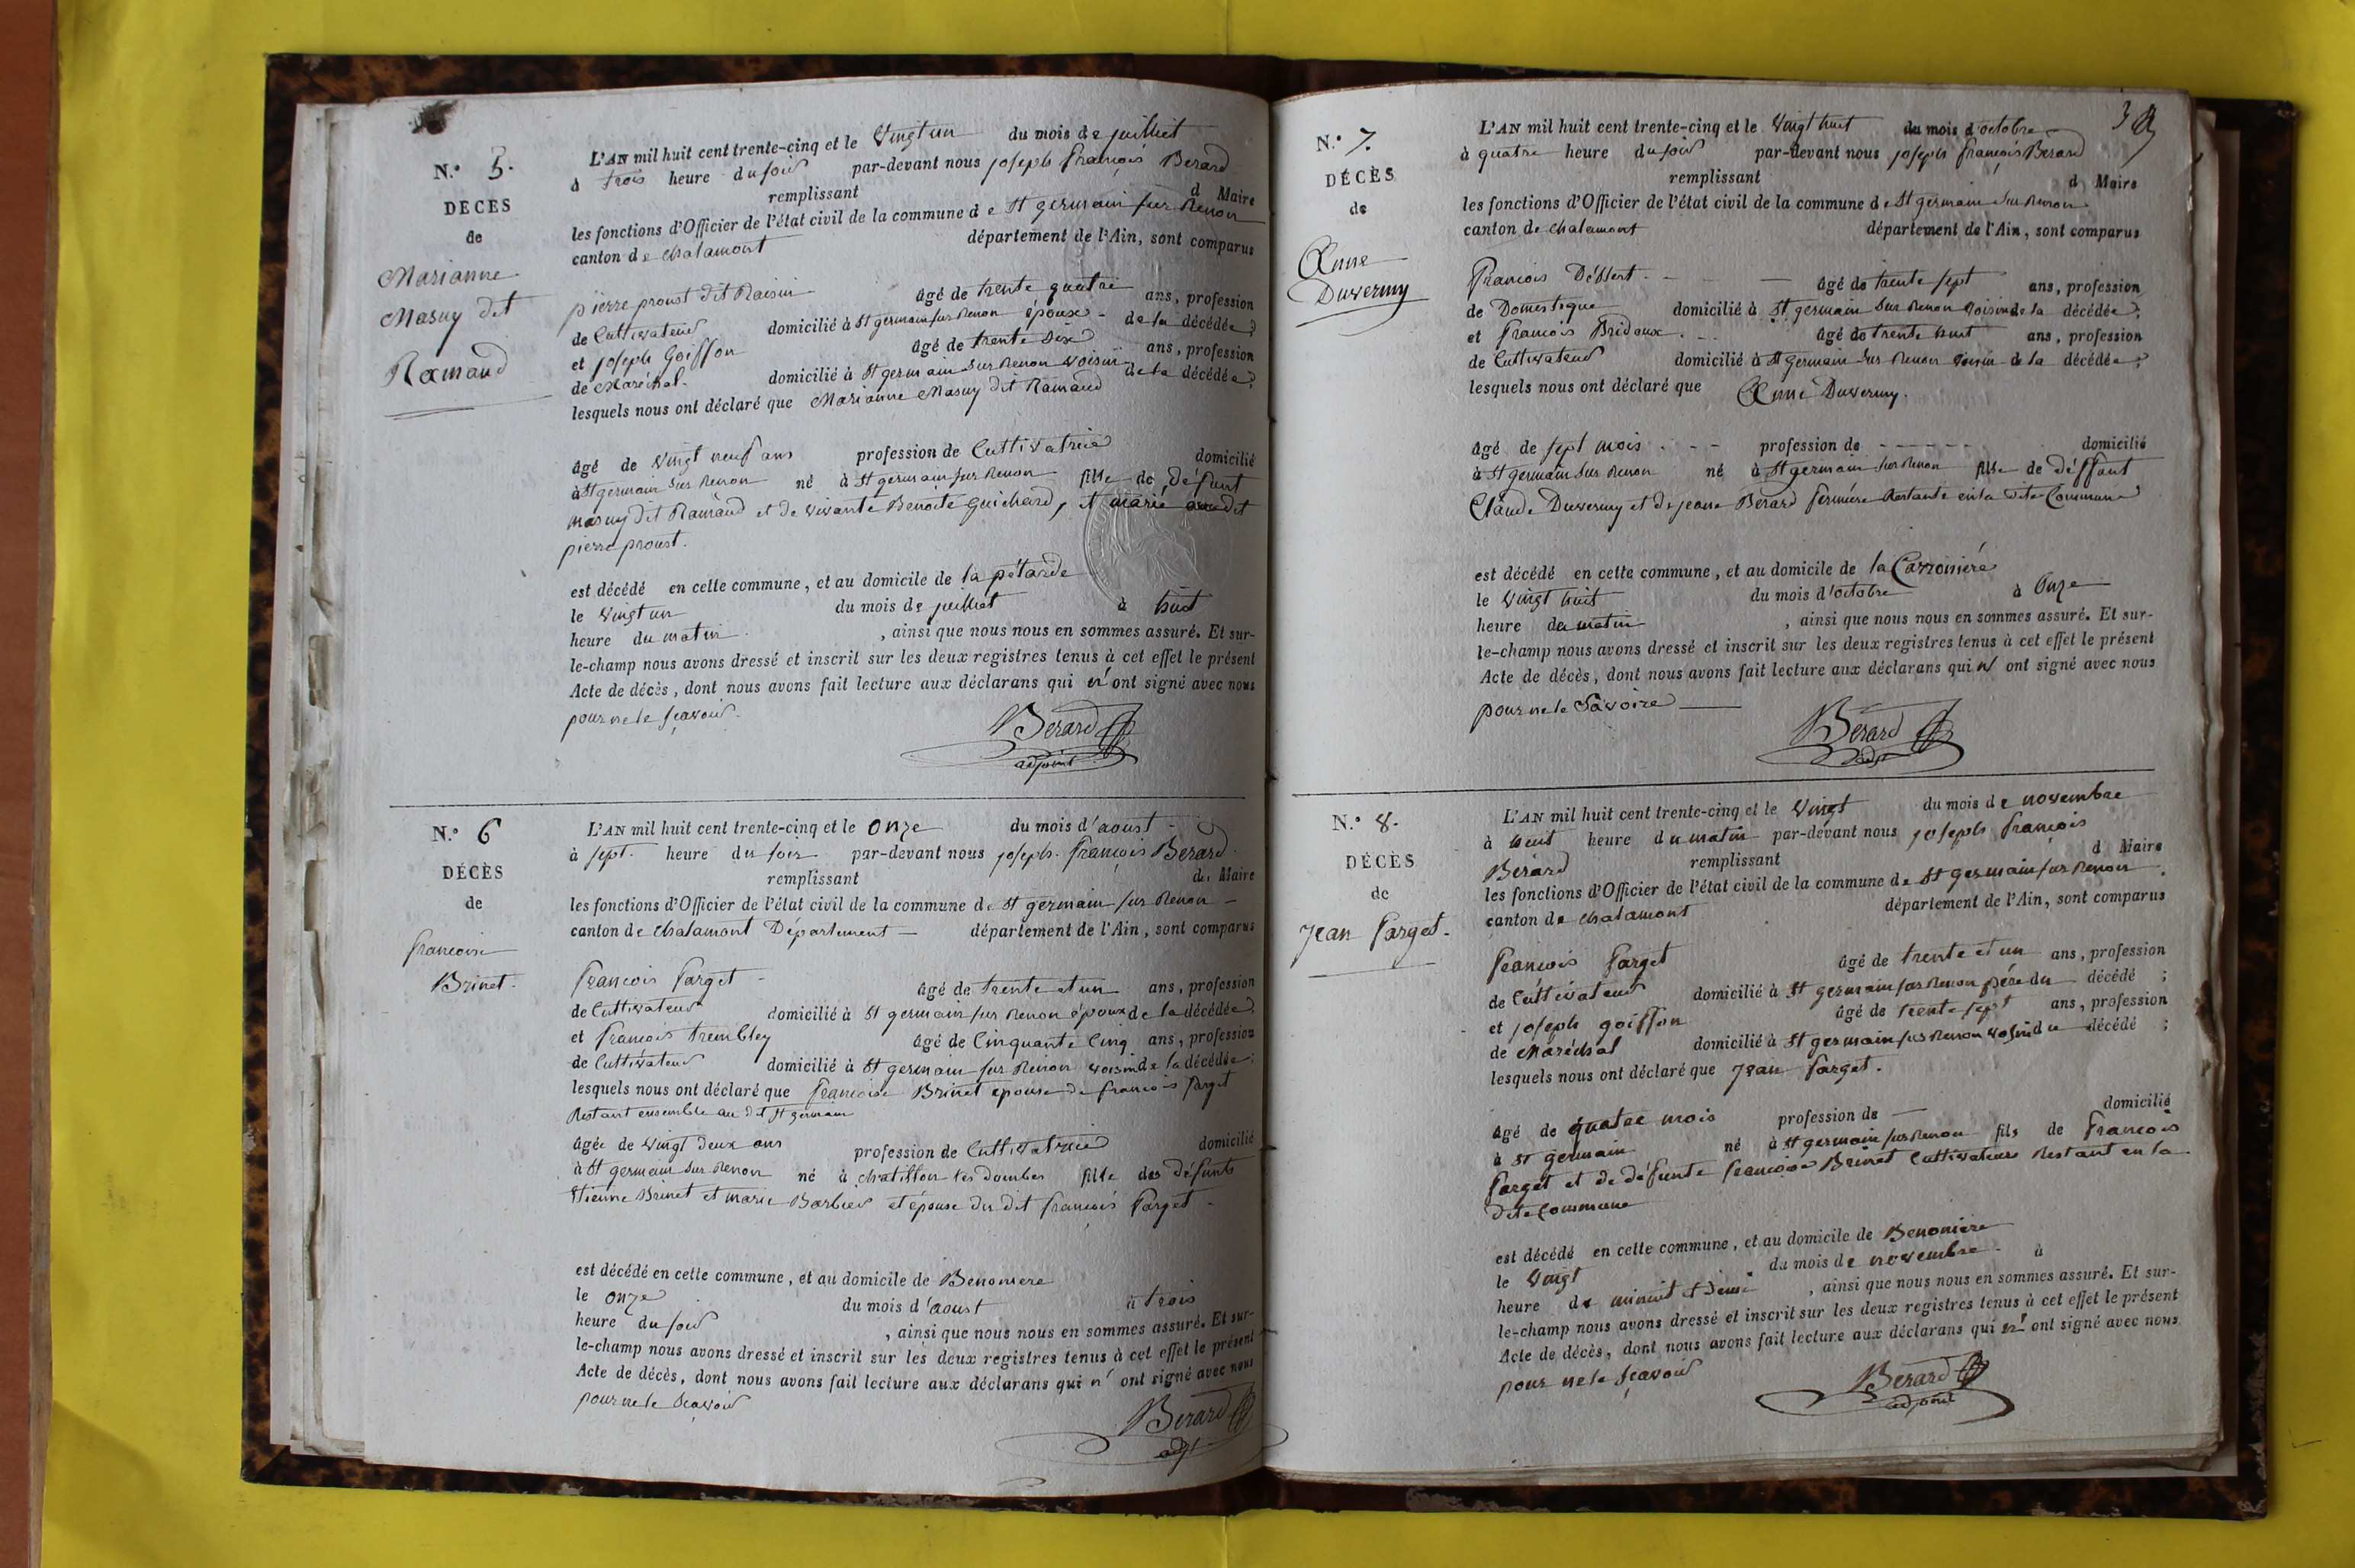 N.° 5.
DÉCÈS
de
Marianne
Masuy dit
Ramaud
L'AN mil huit cent trente-cinq et le Vingt un du mois de juilliet
à trois heure du soir par-devant nous joseph françois Berard
remplissant d Maire
les fonctions d'Officier de l'état civil de la commune de St germain sur Renon
canton de chalamont département de l'Ain, sont comparus
pierre proust dit Raisin âgé de trente quatre ans, profession
de Cultivateur domicilié à St germain sur Renon époux de la décédée;
et joseph Goiffon âgé de trente Six ans, profession
de Maréchal. domicilié à St germain Sur Renon voisin de la décédée;
lesquels nous ont déclaré que Marianne Masuy dit Ramaud
âgé de vingt neuf ans profession de Cultivatrice domicilié
à St germain Sur Renon né à St germain sur Renon fille de défunt
masuy dit Ramaud et de vivante Benoite Guichard, et marié audit
pierre proust.
est décédé en cette commune, et au domicile de la pétarde
le Vingt un du mois de juilliet à huit
heure du matin , ainsi que nous nous en sommes assuré. Et sur-
le-champ nous avons dressé et inscrit sur les deux registres tenus à cet effet le présent
Acte de décès, dont nous avons fait lecture aux déclarans qui n'ont signé avec nous
pour ne le sçavoir.
Berard
adjoint
N.° 6
DÉCÈS
de
francoise
Brinet.
L'AN mil huit cent trente-cinq et le onze du mois d'aoust
à sept. heure du soir par-devant nous joseph françois Berard
remplissant de Maire
les fonctions d'Officier de l'état civil de la commune de St germain sur Renon
canton de chalamont Département département de l'Ain, sont comparus
francois farget âgé de trente et un ans, profession
de Cultivateur domicilié à St germain sur Renon époux de la décédée;
et francois trembley âgé de Cinquante Cinq ans, profession
de Cultivateur domicilié à St germain sur Renon voisin de la décédée;
lesquels nous ont déclaré que francoise Brinet epouse de francois farget
Restant ensemble au dit St germain
âgée de vingt deux ans profession de Cultivatrice domicilié
à St germain Sur Renon né à chatillon les dombes fille des défunts
Etienne Brinet et marie Barbier et épouse du dit francois farget
est décédé en cette commune, et au domicile de Benoniere
le onze du mois d'aoust à trois
heure du soir , ainsi que nous nous en sommes assuré. Et sur-
le-champ nous avons dressé et inscrit sur les deux registres tenus à cet effet le présent
Acte de décès, dont nous avons fait lecture aux déclarans qui n'ont signé avec nous
pour ne le Scavoir
Berard
adjt
N.° 7.
DÉCÈS
de
Anne
Duverny
L'AN mil huit cent trente-cinq et le Vingt huit du mois d'octobre
à quatre heure du soir par-devant nous joseph françois Berard
remplissant d Maire
les fonctions d'Officier de l'état civil de la commune de St germain Sur Renon
canton de chalamont département de l'Ain, sont comparus
francois Déssert âgé de trente sept ans, profession
de Domestique domicilié à St germain Sur Renon voisin de la décédée;
et francois Bridoux âgé de trente huit ans, profession
de Cultivateur domicilié à St germain Sur Renon voisin de la décédée;
lesquels nous ont déclaré que Anne Duverny.
âgé de sept mois profession de domicilié
à St germain Sur Renon né à St germain sur Renon fille de déffunt
Claude Duverny et de jeane Berard fermiere Restante en la dite Commune
est décédé en cette commune, et au domicile de la Carronniéré
le vingt huit du mois d'octobre à Onze
heure du matin , ainsi que nous nous en sommes assuré. Et sur-
le-champ nous avons dressé et inscrit sur les deux registres tenus à cet effet le présent
Acte de décès, dont nous avons fait lecture aux déclarans qui n' ont signé avec nous
pour ne le Savoire
Berard
adjt
N.° 8.
DÉCÈS
de
Jean farget.
L'AN mil huit cent trente-cinq et le Vingt du mois de novembre
à huit heure du matin par-devant nous joseph françois
Bérard remplissant d Maire
les fonctions d'Officier de l'état civil de la commune de St germain sur Renon
canton de chalamont département de l'Ain, sont comparus
francois farget âgé de trente et un ans, profession
de Cultivateur domicilié à St germain sur Renon pére du décédé ;
et joseph goiffon âgé de trente sept ans, profession
de Maréchal domicilié à St germain sur Renon voisin du décédé ;
lesquels nous ont déclaré que Jean farget.
âgé de quatre mois profession de domicilié
à St germain né à St germain sur Renon fils de francois
farget et de défunte francoise Brinet Cultivateur Restant en la
dite Commune
est décédé en cette commune, et au domicile de Benoniere
le Vingt du mois de novembre à
heure de minuit & demi , ainsi que nous nous en sommes assuré. Et sur-
le-champ nous avons dressé et inscrit sur les deux registres tenus à cet effet le présent
Acte de décès, dont nous avons fait lecture aux déclarans qui n'ont signé avec nous
pour ne le sçavoir
Berard
adjoint